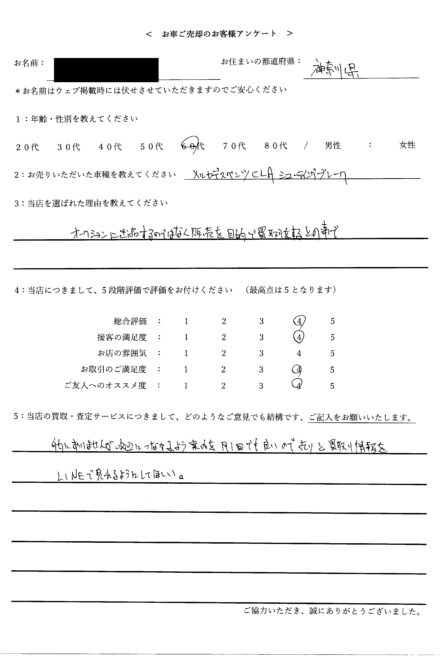 ＜　お車ご売却のお客様アンケート　＞
お名前：
お住まいの都道府県： 神奈川県
＊お名前はウェブ掲載時には伏せさせていただきますのでご安心ください
1：年齢・性別を教えてください
20代 30代 40代 50代 60代 70代 80代 / 男性 ： 女性
2：お売りいただいた車種を教えてください メルセデスベンツCLA シューティングブレーク
3：当店を選ばれた理由を教えてください
オークションに出品するのではなく販売を目的に買取りをするとの事で
4：当店につきまして、5段階評価で評価をお付けください　（最高点は5となります）
総合評価 ： 1 2 3 4 5
接客の満足度 ： 1 2 3 4 5
お店の雰囲気 ： 1 2 3 4 5
お取引のご満足度 ： 1 2 3 4 5
ご友人へのオススメ度 ： 1 2 3 4 5
5：当店の買取・査定サービスにつきまして、どのようなご意見でも結構です、ご記入をお願いいたします。
特にありませんが次回につながるよう案内を月1回でも良いので売りと買取り情報を
LINEで見れるようにしてほしい。
ご協力いただき、誠にありがとうございました。